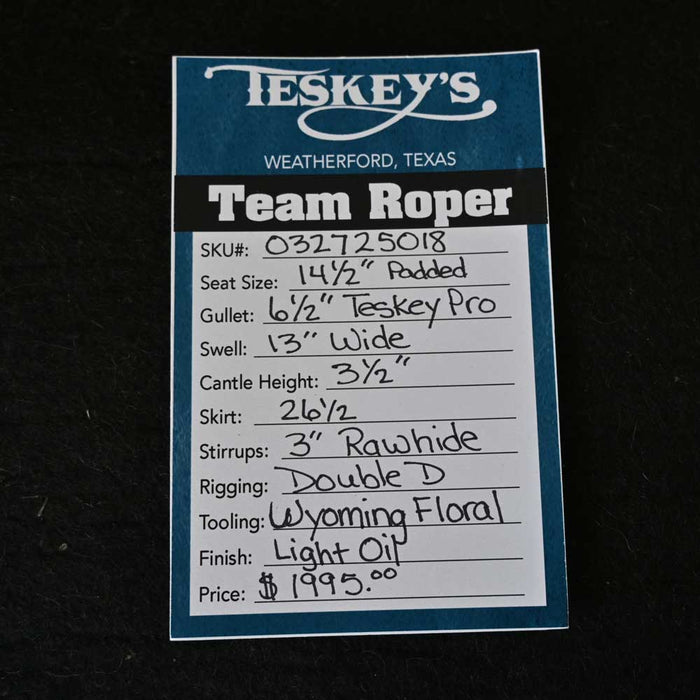 TESKEY'S
WEATHERFORD, TEXAS
Team Roper
SKU#: 032725018
Seat Size: 14½" Padded
Gullet: 6½" Teskey Pro
Swell: 13" Wide
Cantle Height: 3½"
Skirt: 26½
Stirrups: 3" Rawhide
Rigging: Double D
Tooling: Wyoming Floral
Finish: Light Oil
Price: $1995.00